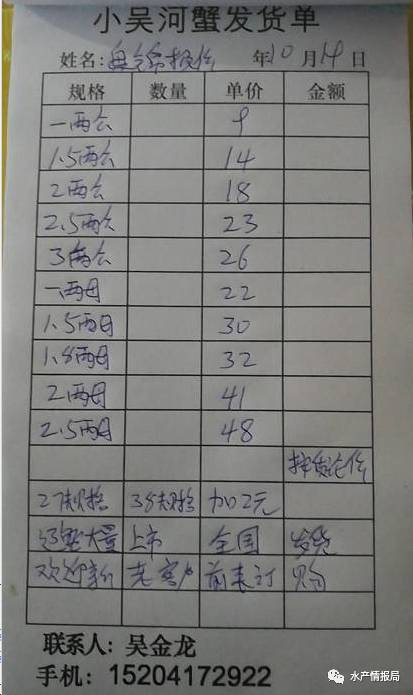 小吴河蟹发货单
姓名：盘锦今日报价 年10月14日
规格 数量 单价 金额
一两公 9
1.5两公 14
2两公 18
2.5两公 23
3两公 26
一两母 22
1.5两母 30
1.8两母 32
2两母 41
2.5两母 48
按质论价
27规格 38规格 加2元
河蟹大量 上市 全国 发货
欢迎新 老客户 前来订 购
联系人：吴金龙
手机：15204172922
水产情报局